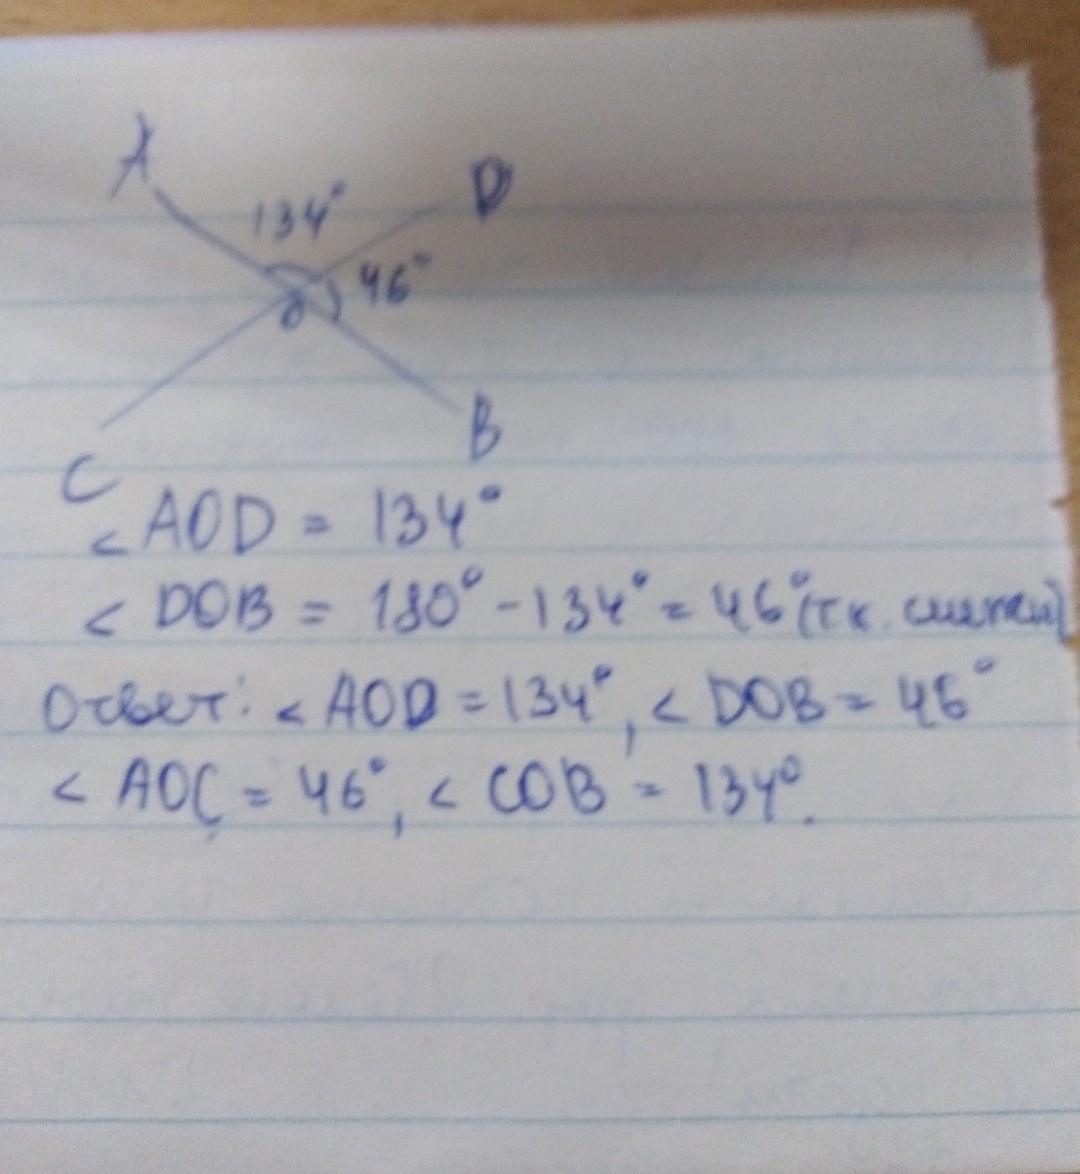 A
D
134°
46°
O
B
C
< AOD = 134°
< DOB = 180° - 134° = 46° (т.к. смежн)
Ответ: < AOD = 134°, < DOB = 46°
< AOC = 46°, < COB = 134°.